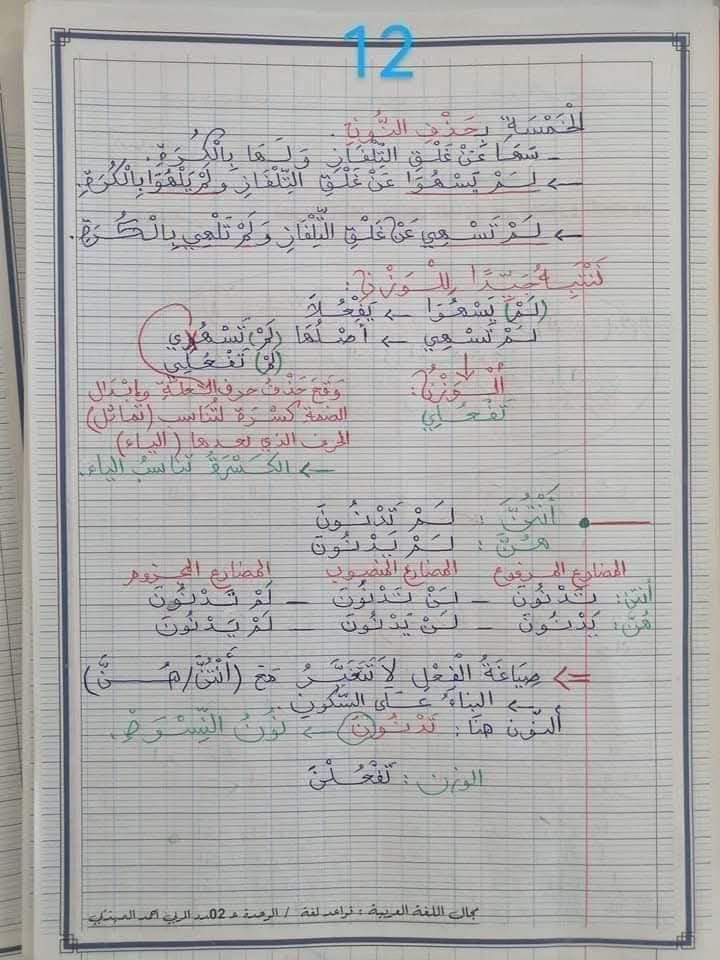 12
الْخَمْسَةِ بِحَذْفِ النُّونِ.
- سَهَا عَنْ غَلْقِ التِّلْفَازِ وَلَهَا بِالْكُرَةِ.
← لَمْ يَسْهُوَا عَنْ غَلْقِ التِّلْفَازِ وَلَمْ يَلْهُوَا بِالْكُرَةِ.
← لَمْ تَسْهِي عَنْ غَلْقِ التِّلْفَازِ وَلَمْ تَلْهِي بِالْكُرَةِ.
نَنْتَبِهُ جَيِّدًا لِلْوَزْنِ:
(لَمْ) يَسْهُوَا ← يَفْعُلَا
لَمْ تَسْهِي ← أَصْلُهَا (لَمْ) تَسْهُوِي
(لَمْ) تَفْعُلِي
الْوَزْنُ: وَقَعَ حَذْفُ حرف العلّة وإبدال
تَفْعِي الضمة كسْرَة لتُناسب (تماثل)
الحرف الذي بعدها (الياء)
← الكَسْرَةُ تناسبُ الياء.
أَنْتُنَّ: لَمْ تَدْنُونَ
هُنَّ: لَمْ يَدْنُونَ
المضارع المرفوع المضارع المنصوب المضارع المجزوم
أنتنّ: تَدْنُونَ - لَنْ تَدْنُونَ - لَمْ تَدْنُونَ
هُنَّ: يَدْنُونَ - لَنْ يَدْنُونَ - لَمْ يَدْنُونَ
<= صِيَاغَةُ الْفِعْلِ لَا تَتَغَيَّرُ مَعَ (أَنْتُنَّ/هُنَّ)
← البناءُ عَلى السّكونِ.
النّون هنا: تَدْنُونَ ← نُونُ النِّسْوَةِ
الوزن: تَفْعُلْنَ
مجال اللغة العربية: قواعد لغة / الوحدة 02